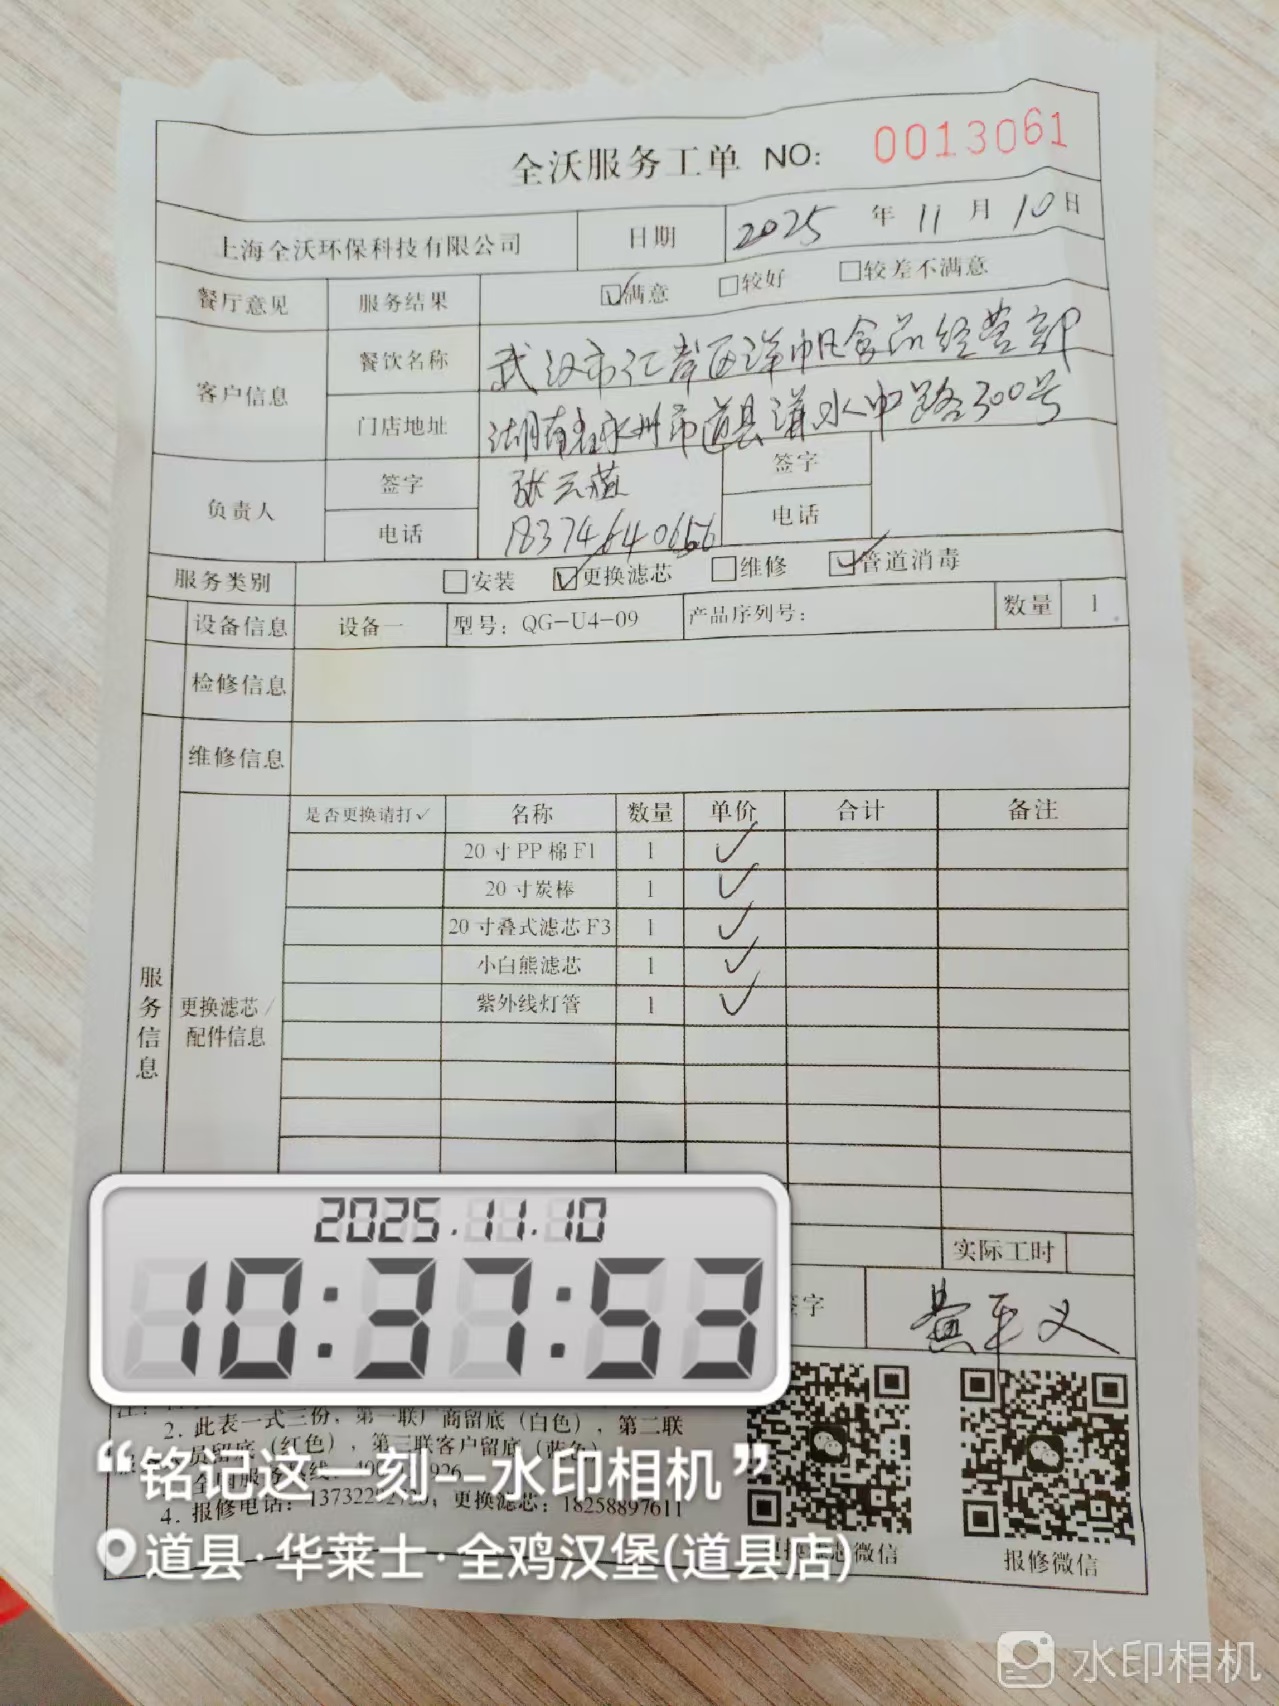 全沃服务工单 NO: 0013061
上海全沃环保科技有限公司 日期 2025 年 11 月 10 日
餐厅意见 服务结果 ☑满意 □较好 □较差不满意
客户信息 餐饮名称 武汉市江岸西洋帆食品经营部
门店地址 湖南省永州市道县潇水中路300号
负责人 签字 张云 签字
电话 18374640656 电话
服务类别 □安装 ☑更换滤芯 □维修 ☑管道消毒
设备信息 设备一 型号：QG-U4-09 产品序列号： 数量 1
检修信息
维修信息
是否更换请打✓ 名称 数量 单价 合计 备注
20寸PP棉F1 1 ✓
20寸炭棒 1 ✓
20寸叠式滤芯F3 1 ✓
小白熊滤芯 1 ✓
紫外线灯管 1 ✓
服务信息
更换滤芯/
配件信息
实际工时
2025.11.10
10:37:53
签字
2. 此表一式三份，第一联厂商留底（白色），第二联
员留底（红色），第三联客户留底（蓝色）
“铭记这一刻--水印相机”
4. 报修电话： 更换滤芯：18258897611
道县·华莱士·全鸡汉堡(道县店)
微信
报修微信
水印相机